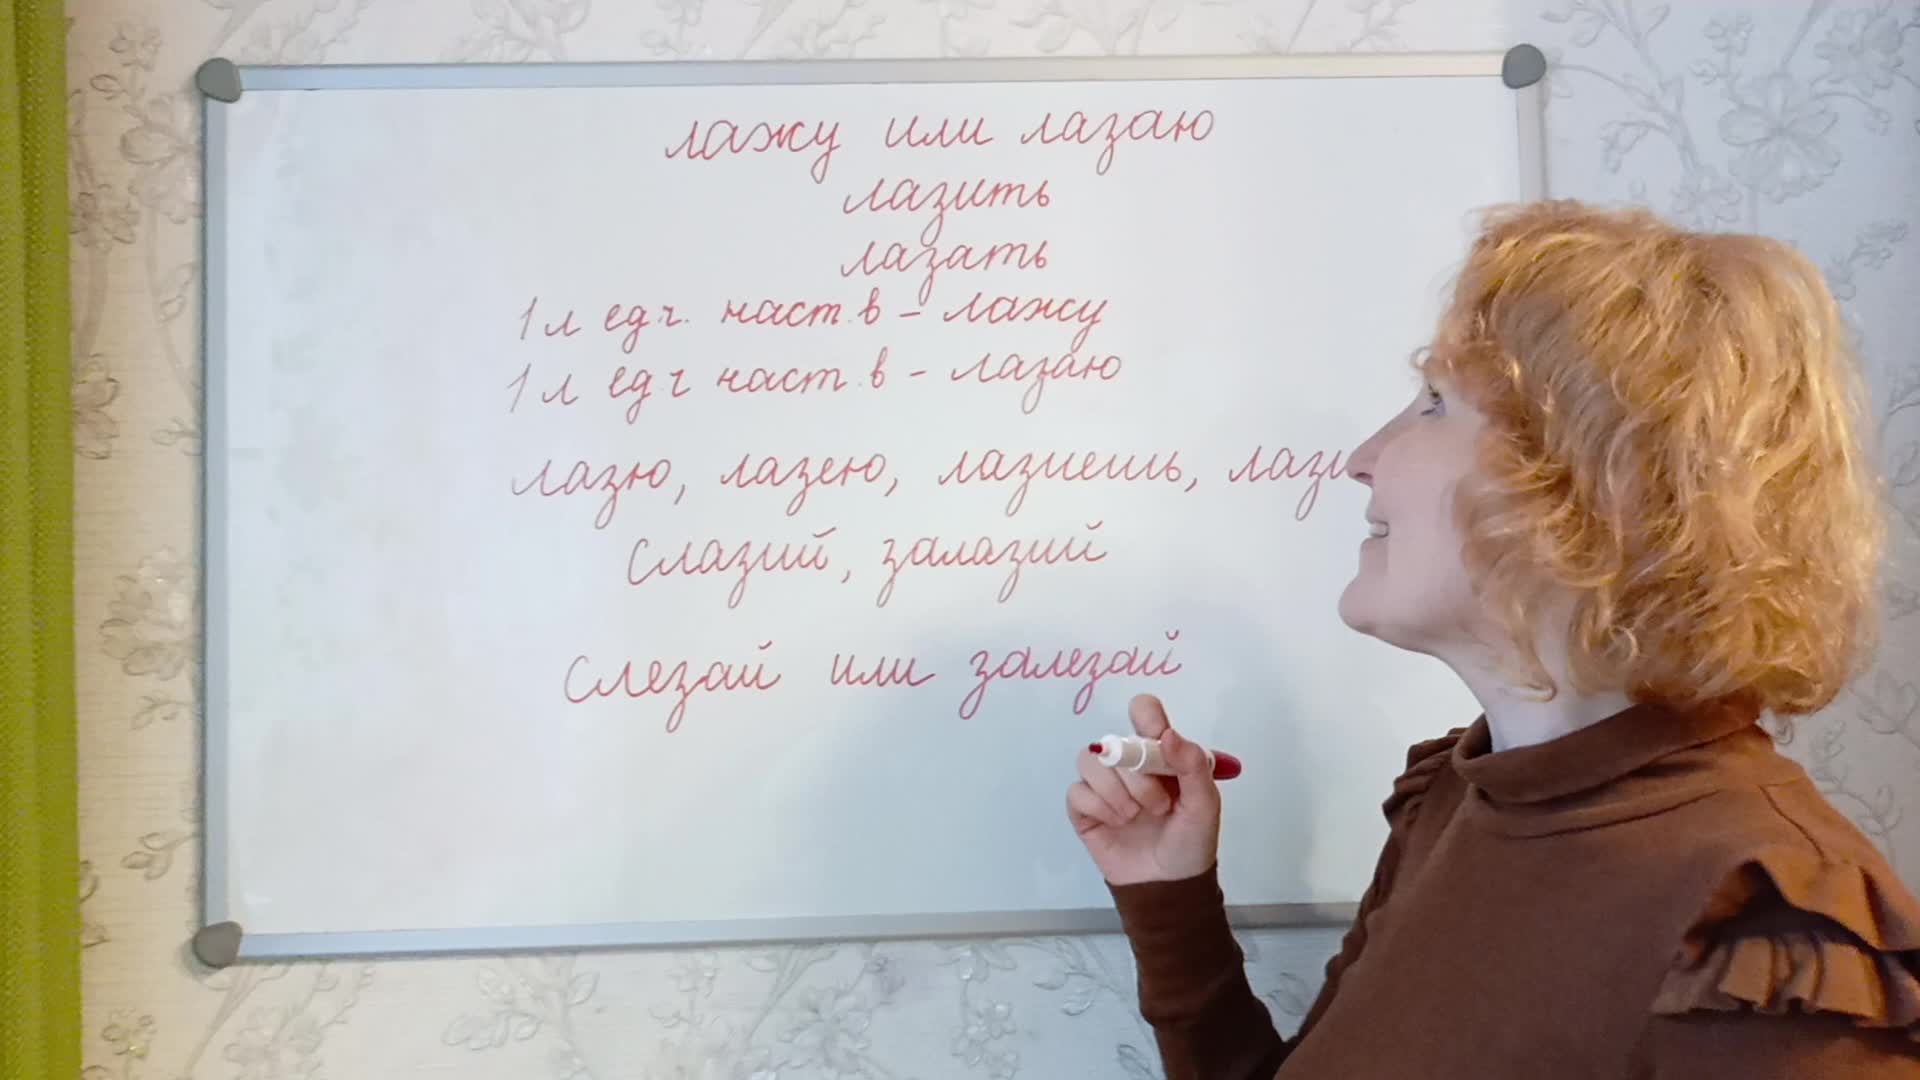 лажу или лазаю
лазить
лазать
1 л ед.ч. наст.в – лажу
1 л ед.ч наст.в – лазаю
лазю, лазею, лазиешь,
Слазий, залазий
Слезай или залезай